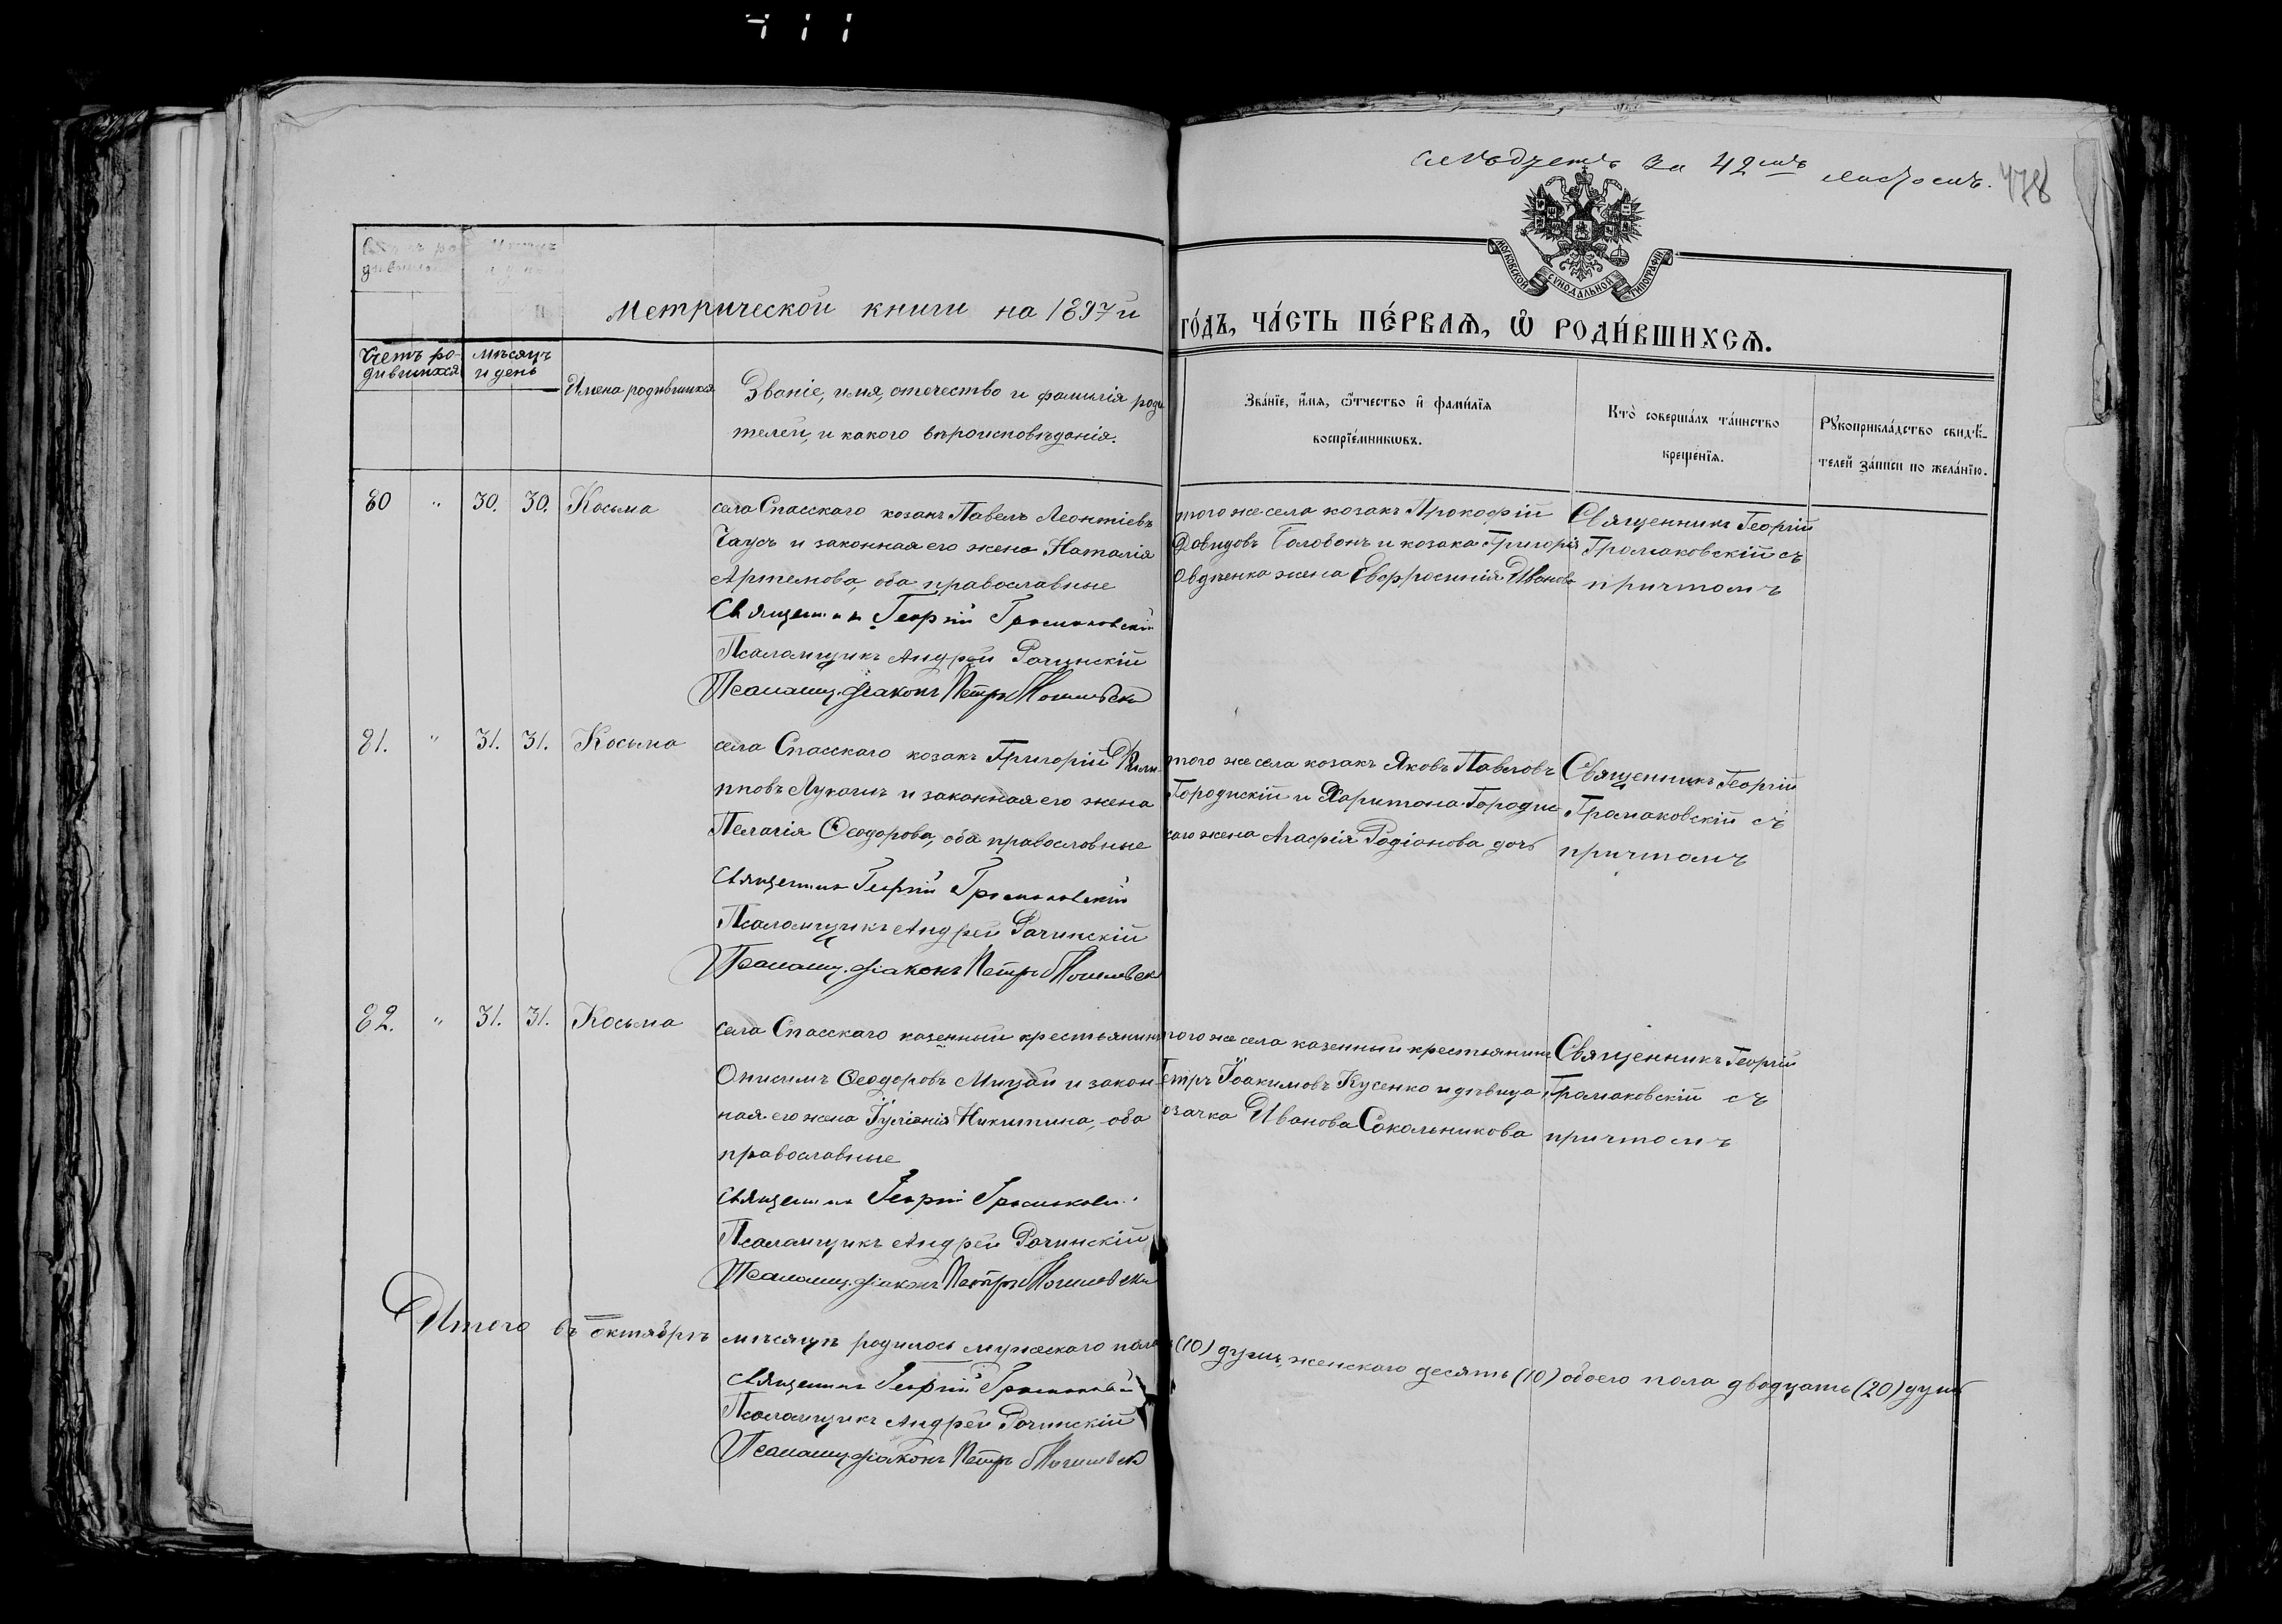 слѣдуетъ за 42мъ листомъ. 478
МОСКОВСКОЙ СѴНОДАЛЬНОЙ ТИПОГРАФІИ
Метрической книги на 1897й
го́дъ, ча́сть пе́рваѧ, ѡ҆ роди́вшихсѧ.
Счетъ ро-
дившихся
мѣсяцъ
и день
Имена родившихся
Званіе, имя, отечество и фамилія роди
телей, и какого вѣроисповѣданія.
Зва́нїе, и҆́мѧ, ѻ҆́тчество и҆ фами́лїѧ
воспрїе́мникѡвъ.
Кто̀ соверша́лъ та́инство
креще́нїѧ.
Рꙋкоприкла́дство свидѣ́-
телей за́писи по жела́нїю.
80 " 30. 30. Косьма
села Спасскаго козакъ Павелъ Леонтіевъ
Чаусъ и законная его жена Наталія
Артемова, оба православные
Священникъ Георгій Громаковскій
Псаломщикъ Андрей Рачинскій
Псаломщ. діаконъ Петръ
того же села козакъ Прокофій
Давидовъ Головонъ и козака Григорія
Овдѣенка жена Евфросинія Иванова
Священникъ Георгій
Громаковскій съ
причтомъ
81. " 31. 31. Косьма
села Спасскаго козакъ Григорій Фили-
пповъ Лукашъ и законная его жена
Пелагія Ѳеодорова, оба православные
Священникъ Георгій Громаковскій
Псаломщикъ Андрей Рачинскій
Псаломщ. діаконъ Петръ
того же села козакъ Яковъ Павловъ
Городискій и Харитона Городис
каго жена Агафія Родіонова дочь
Священникъ Георгій
Громаковскій съ
причтомъ
82. " 31. 31. Косьма
села Спасскаго казенный крестьянинъ
Онисимъ Ѳеодоровъ Мицай и закон-
ная его жена Іуліанія Никитина, оба
православные
Священникъ Георгій Громаковскій
Псаломщикъ Андрей Рачинскій
Псаломщ. діаконъ Петръ
того же села казенный крестьянинъ
етръ Іоакимовъ Кусенко и дѣвица
озачка Иванова Сокольникова
Священникъ Георгій
Громаковскій съ
причтомъ
Итого въ октябрѣ мѣсяцѣ родилось мужескаго пола (10) душъ, женскаго десять (10) обоего пола двадцать (20) душъ
Священникъ Георгій Громаковскій
Псаломщикъ Андрей Рачинскій
Псаломщ. діаконъ Петръ